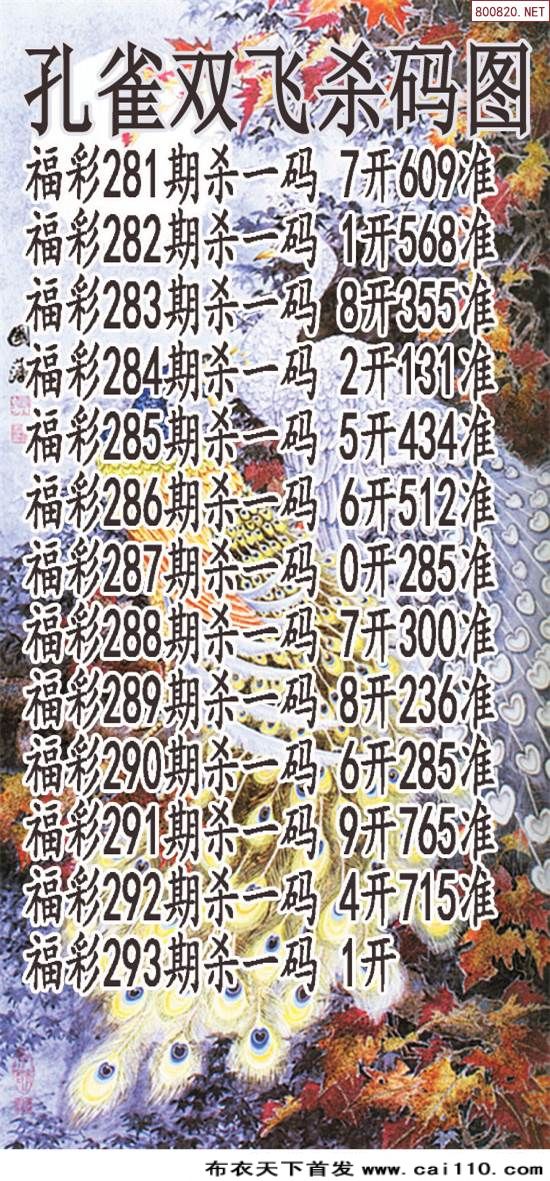 800820.NET
孔雀双飞杀码图
福彩281期杀一码 7开609准
福彩282期杀一码 1开568准
福彩283期杀一码 8开355准
福彩284期杀一码 2开131准
福彩285期杀一码 5开434准
福彩286期杀一码 6开512准
福彩287期杀一码 0开285准
福彩288期杀一码 7开300准
福彩289期杀一码 8开236准
福彩290期杀一码 6开285准
福彩291期杀一码 9开765准
福彩292期杀一码 4开715准
福彩293期杀一码 1开
布衣天下首发 www.cai110.com